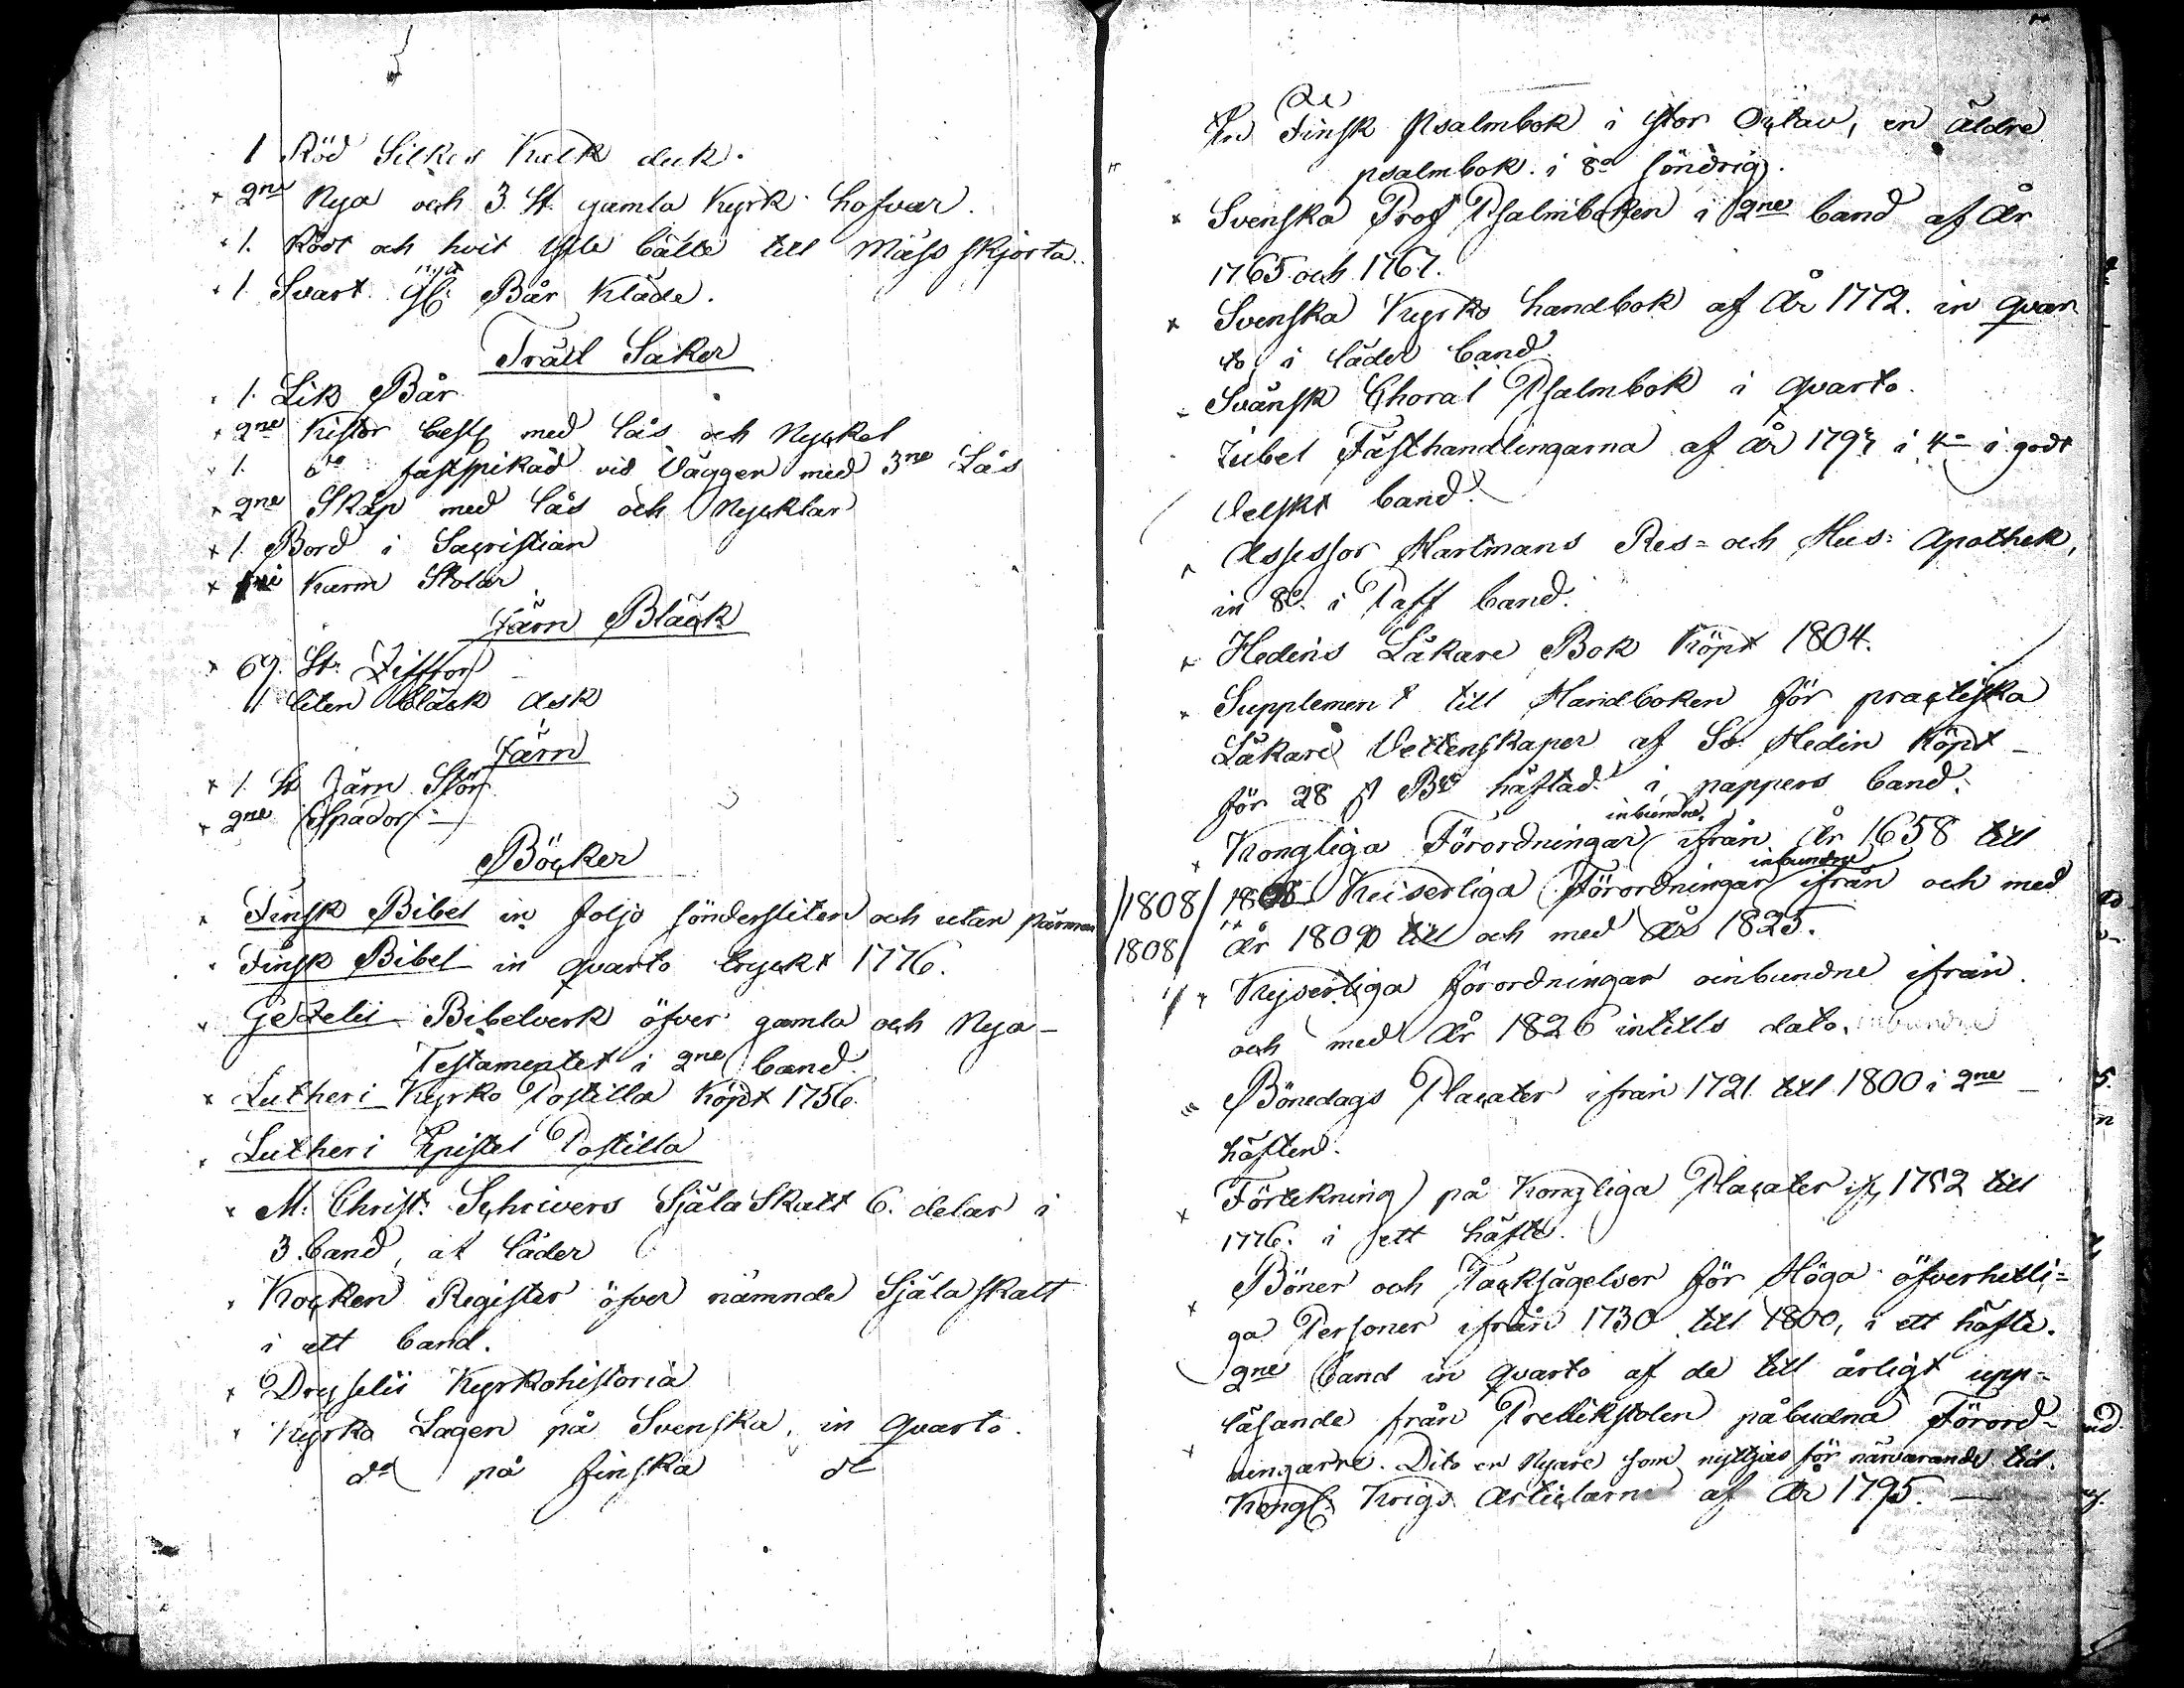 1 Röd Silkes Kalk duk.
2ne Nya och 3. St. gamla Kyrk hofvar.
1. Rödt och hvit Ylle bälte till Mäss skjorta.
nya
1 Svart Bår Kläde.
Träll Saker
1. Lik Bår
2ne Kistor med lås och Nyckel
1. do fastspikad vid Väggen med 3ne Lås
2ne Skåp med lås och Nycklar
1. Bord i Sacristian
Karm Stolar
Järn Bläck
69. St. Ziffror
1 liten Bläck Ask
Järn
1. St Järn Stör
2ne Spador
Böcker
Finsk Bibel in folio söndersliten och utan pärmar
Finsk Bibel in quarto tryckt 1776.
Gezelii Bibelverk öfver gamla och Nya
Testamentet i 2ne band.
Lutheri Kyrko Postilla Köpt 1756.
Lutheri Epistel Postilla
M. Christ: Schrivers Själa Skatt 6. delar i
3. band, at läder
Kocken Register öfver nämnde Själa skatt
i ett band.
Dryselii Kyrkohistoria
Kyrko Lagen på Svenska, in Quarto.
do på finska do
Finsk Psalmbok i stor Octav, en äldre
psalmbok i 8o söndrig.
Svenska Prof Psalmboken i 2ne band af År
1765 och 1767.
Svenska Kyrko handbok af År 1772. in quar
to i läder band
Svänsk Choral Psalmbok i quarto.
Jubel Fästhandlingarna af År 1793 i 4o i godt
Velskt band.
Assessor Hartmans Res= och Hus: Apothek,
in 8o. i Paff band.
Hedins Läkare Bok Köpt 1804.
Supplement till Handboken för practiska
Läkare Vettenskapen af Sv. Hedin Köpt
för 28 s Bco häftad i pappers band.
inbundne
Kongliga Förordningar ifrån År 1658 till
inbundne
/1808/ Keiserliga Förordningar ifrån och med
1808/ År 1809 till och med År 1825.
Kejserliga förordningar oinbundne ifrån
och med År 1826 intills dato. inbundne
Bönedags Placater ifrån 1721 till 1800 i 2ne
häften.
Förtekning på Kongliga Placater 1752 till
1776. i ett häfte.
Böner och Tacksägelser för Höga öfverhetli=
ga Personer ifrån 1730 till 1800, i ett häfte.
2ne band in quarto af de till årligt upp=
läsande från Predikstolen påbudna Förord=
ningarne. Dito en Nyare som nyttjas för närvarande tid.
Kongl. Krigs Articlarne af År 1795.